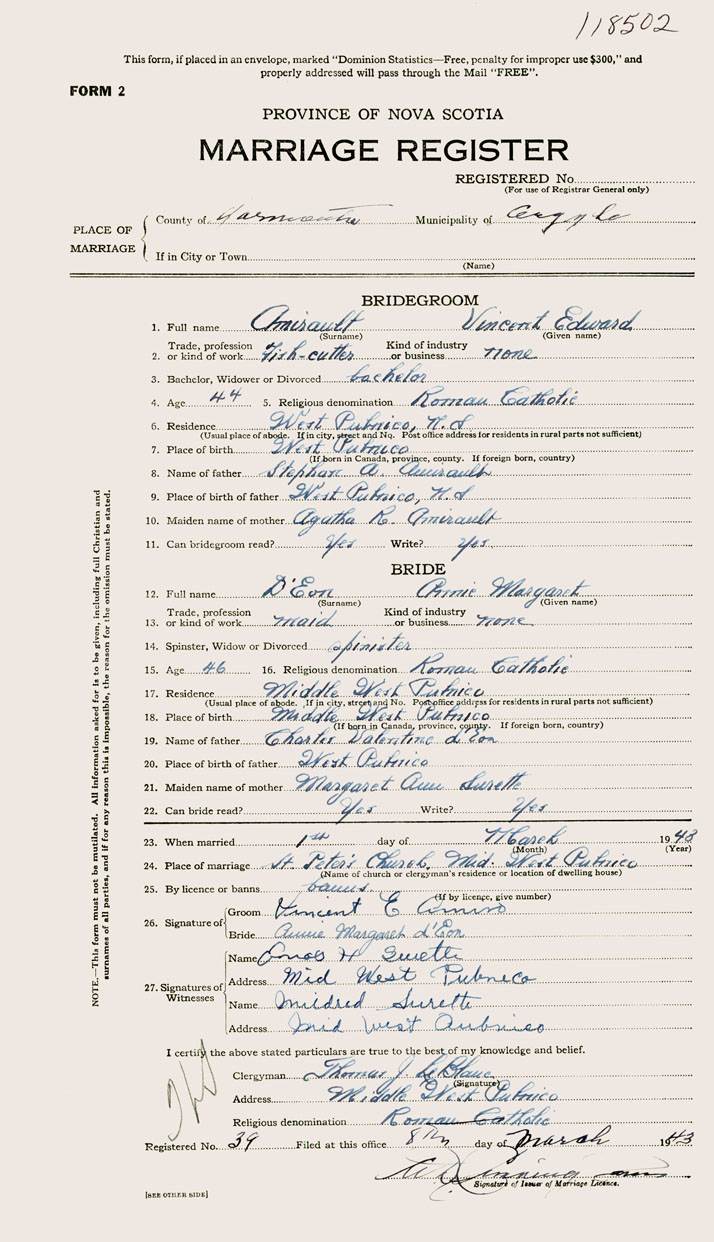 118502
This form, if placed in an envelope, marked "Dominion Statistics—Free, penalty for improper use $300," and
properly addressed will pass through the Mail "FREE".
FORM 2
PROVINCE OF NOVA SCOTIA
MARRIAGE REGISTER
REGISTERED No.
(For use of Registrar General only)
PLACE OF MARRIAGE
County of Yarmouth Municipality of Argyle
If in City or Town
(Name)
BRIDEGROOM
1. Full name Amirault Vincent Edward
(Surname) (Given name)
2. Trade, profession or kind of work Fish-cutter Kind of industry or business none
3. Bachelor, Widower or Divorced bachelor
4. Age 44 5. Religious denomination Roman Catholic
6. Residence West Pubnico, N.S
(Usual place of abode. If in city, street and No. Post office address for residents in rural parts not sufficient)
7. Place of birth West Pubnico
(If born in Canada, province, county. If foreign born, country)
8. Name of father Stephan A. Amirault
9. Place of birth of father West Pubnico, N.S
10. Maiden name of mother Agatha R. Amirault
11. Can bridegroom read? Yes Write? Yes
BRIDE
12. Full name D'Eon Annie Margaret
(Surname) (Given name)
13. Trade, profession or kind of work maid Kind of industry or business none
14. Spinster, Widow or Divorced spinister
15. Age 46 16. Religious denomination Roman Catholic
17. Residence Middle West Pubnico
(Usual place of abode. If in city, street and No. Post office address for residents in rural parts not sufficient)
18. Place of birth Middle West Pubnico
(If born in Canada, province, county. If foreign born, country)
19. Name of father Charles Valentine d'Eon
20. Place of birth of father West Pubnico
21. Maiden name of mother Margaret Ann Surette
22. Can bride read? Yes Write? Yes
23. When married 1st day of March 1943
(Month) (Year)
24. Place of marriage St. Peter's Church, Mid. West Pubnico
(Name of church or clergyman's residence or location of dwelling house)
25. By licence or banns banns
(If by licence, give number)
26. Signature of
Groom Vincent E
Bride Annie Margaret d'Eon
27. Signatures of Witnesses
Name Enos H Surette
Address Mid West Pubnico
Name Mildred Surette
Address Mid West Pubnico
I certify the above stated particulars are true to the best of my knowledge and belief.
Clergyman Thomas J. LeBlanc
(Signature)
Address Middle West Pubnico
Religious denomination Roman Catholic
Registered No. 39 Filed at this office 8th day of March 1943
Signature of Issuer of Marriage Licence.
[SEE OTHER SIDE]
NOTE.—This form must not be mutilated. All information asked for is to be given, including full Christian and
surnames of all parties, and if for any reason this is impossible, the reason for the omission must be stated.